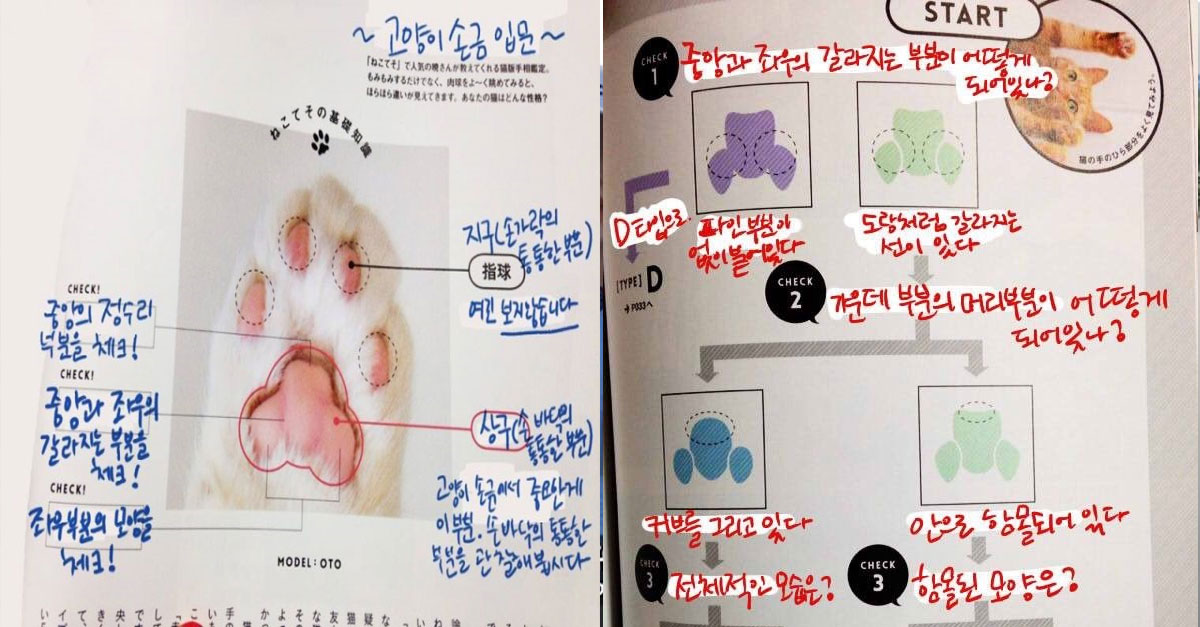 ~ 고양이 손금 입문 ~
「ねこてそ」で人気の暁さんが教えてくれる猫版手相鑑定。
もみもみするだけでなく、肉球をよ〜く眺めてみると、
ほらほら違いが見えてきます。あなたの猫はどんな性格?
ねこてその基礎知識
지구(손가락의
통통한 부분)
指球
여긴 보지않습니다
CHECK!
중앙의 정수리
부분을 체크!
CHECK!
중앙과 좌우의
갈라지는 부분을
체크!
CHECK!
좌우부분의 모양을
체크!
상구(손바닥의
통통한 부분)
고양이 손금에서 중요한게
이부분. 손바닥의 통통한
부분을 관찰해봅시다
MODEL: OTO
START
CHECK
1
중앙과 좌우의 갈라지는 부분이 어떻게
되어있나?
猫の手のひら部分をよく見てみよう
D타입으로.
파인부분이
없이붙어있다
도랑처럼 갈라지는
선이 있다
[TYPE] D
→P033へ
CHECK
2
가운데 부분의 머리부분이 어떻게
되어있나?
커브를 그리고 있다
안으로 함몰되어 있다
CHECK
3
전체적인 모습은?
CHECK
3
함몰된 모양은?